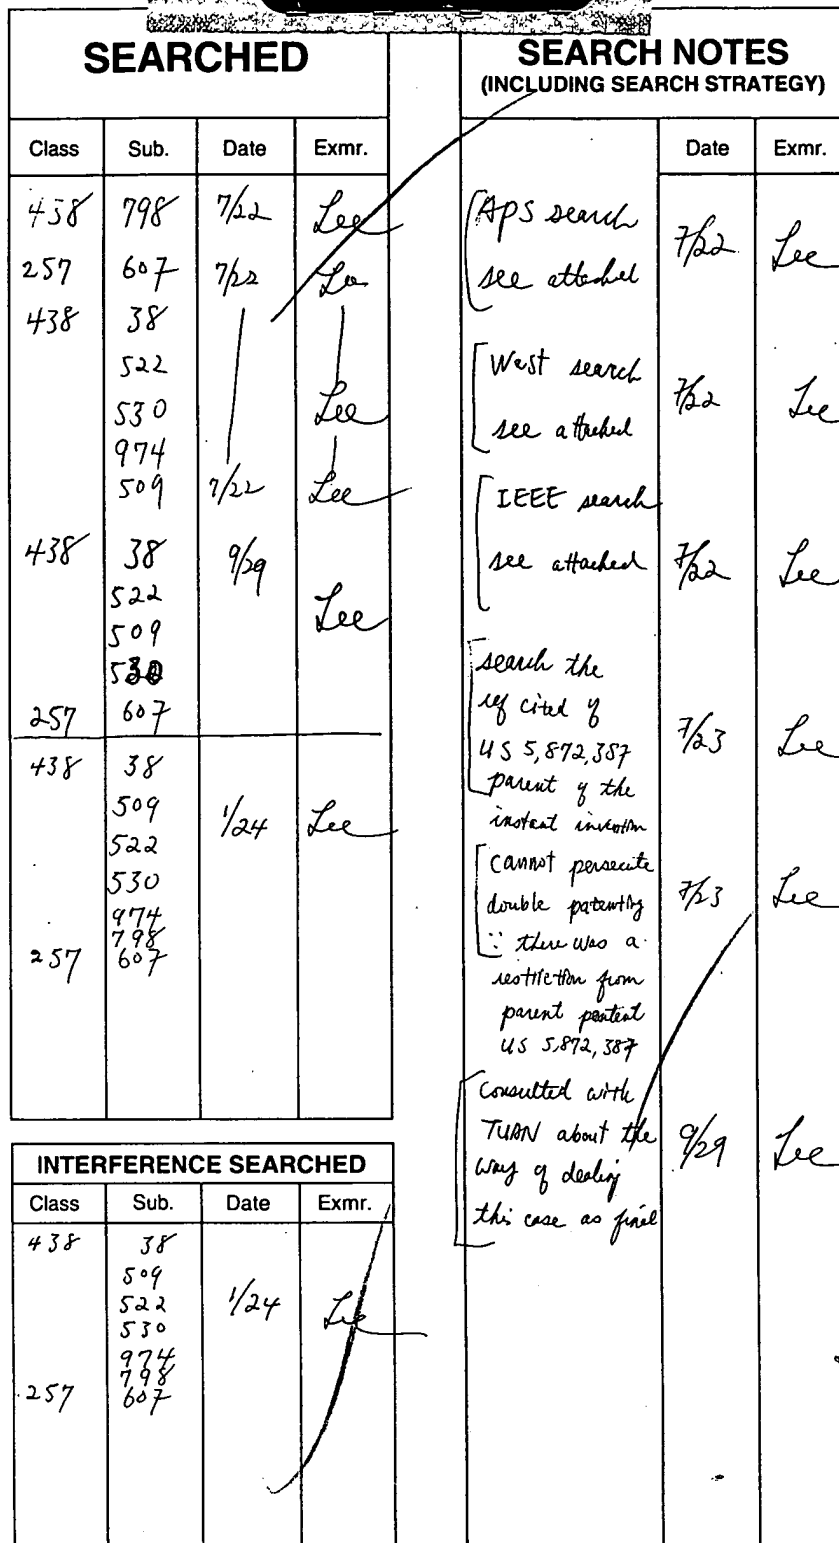 SEARCHED
Class Sub. Date Exmr.
438 798 7/22 Lee
257 607 7/22 Lee
438 38
522
530 Lee
974
509 7/22 Lee
438 38 9/29
522
509 Lee
530
257 607
438 38
509 1/24 Lee
522
530
974
798
257 607
INTERFERENCE SEARCHED
Class Sub. Date Exmr.
438 38
509
522 1/24 Lee
530
974
798
257 607
SEARCH NOTES
(INCLUDING SEARCH STRATEGY)
Date Exmr.
APS search
see attached 7/22 Lee
West search
see attached 7/22 Lee
IEEE search
see attached 7/22 Lee
search the
ref cited of
US 5,872,387 7/23 Lee
parent of the
instant invention
cannot persecite
double patenting 7/23 Lee
∵ there was a
restriction from
parent pentent
US 5,872,387
Consulted with
TUAN about the 9/29 Lee
way of dealing
this case as final